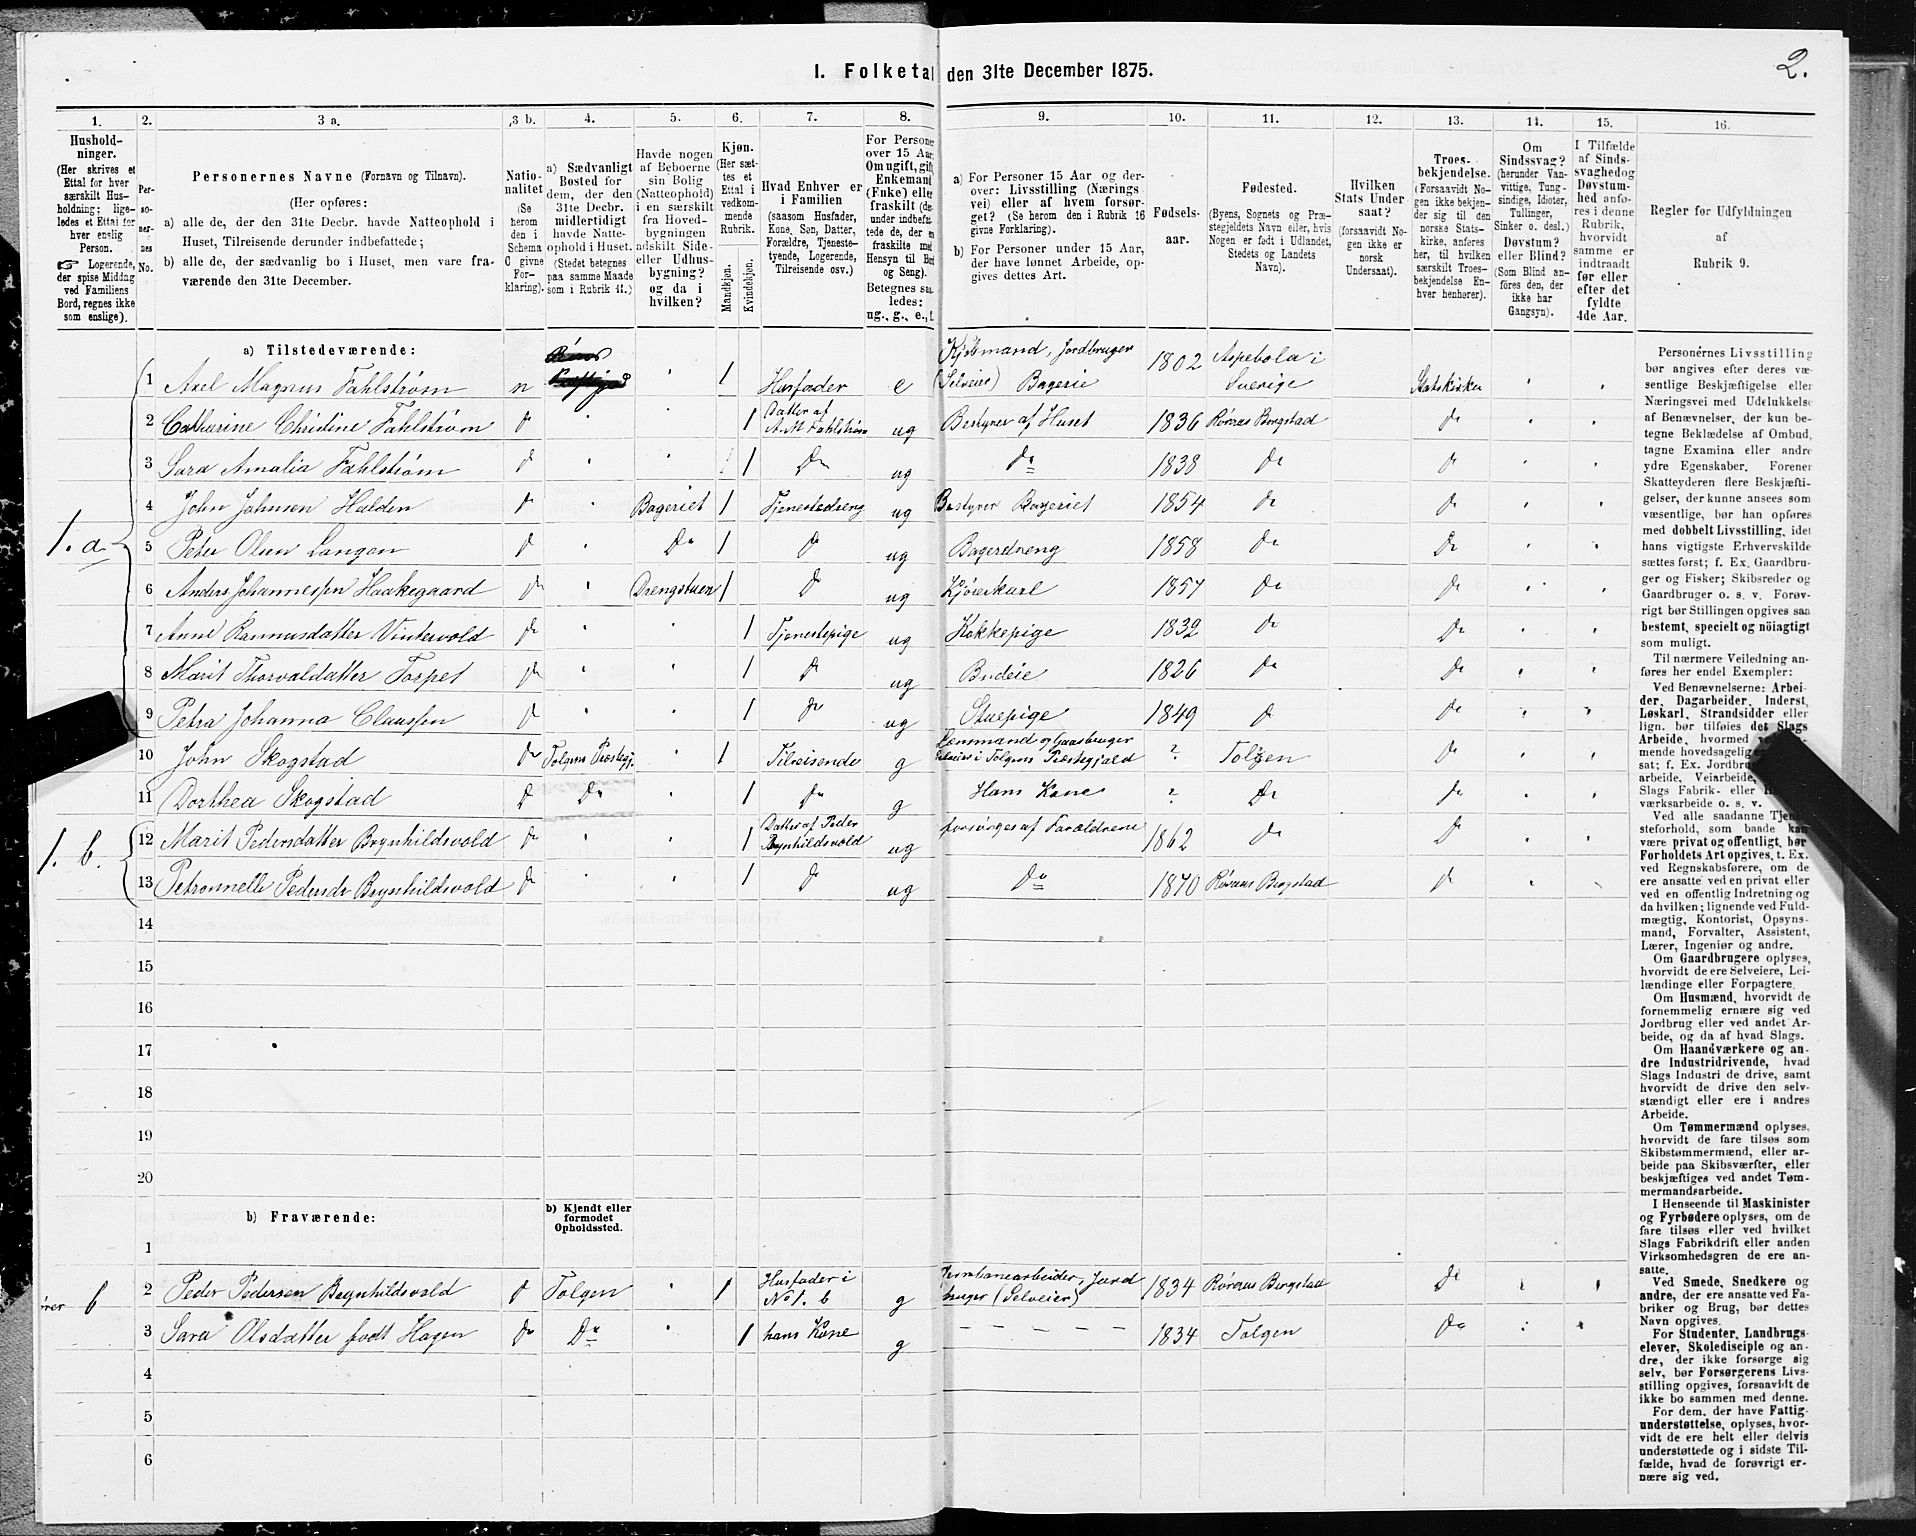 2.
I. Folketal den 31te December 1875.
1.
Hushold-
ninger.
(Her skrives et
Ettal for hver
særskilt Hus-
holdning; lige-
ledes et Ettal for
hver enslig
Person.
☞ Logerende,
der spise Middag
ved Familiens
Bord, regnes ikke
som enslige).
2.
Per-
so-
ner-
nes
No.
3 a.
Personernes Navne (Fornavn og Tilnavn).
(Her opføres:
a) alle de, der den 31te Decbr. havde Natteophold i
Huset, Tilreisende derunder indbefattede;
b) alle de, der sædvanlig bo i Huset, men vare fra-
værende den 31te December.
3 b.
Natio-
nalitet
(Se
herom
den i
Schema
C givne
For-
klaring).
4.
a) Sædvanligt
Bosted for
dem, der den
31te Decbr.
midlertidigt
havde Natte-
ophold i Huset.
(Stedet betegnes
paa samme Maade
som i Rubrik 11.)
5.
Havde nogen
af Beboerne
sin Bolig
(Natteophold)
i en særskilt
fra Hoved-
bygningen
adskilt Side-
eller Udhus-
bygning?
og da i
hvilken?
6.
Kjøn.
(Her sæt-
tes et
Ettal i
vedkom-
mende
Rubrik.
Mandkjøn.
Kvindekjøn.
7.
Hvad Enhver er
i Familien
(saasom Husfader,
Kone, Søn, Datter,
Forældre, Tjeneste-
tyende, Logerende,
Tilreisende osv.)
8.
For Persone
over 15 Aar
Om ugift, gift
Enkemand
(Enke) elle
fraskilt (de
under indbefat
tede de, der e
fraskilte med
Hensyn til Bord
og Seng).
Betegnes saa
ledes:
ug., g., e., f.
9.
a) For Personer 15 Aar og der-
over: Livsstilling (Nærings-
vei) eller af hvem forsør-
get? (Se herom den i Rubrik 16
givne Forklaring).
b) For Personer under 15 Aar,
der have lønnet Arbeide, op-
gives dettes Art.
10.
Fødsels-
aar.
11.
Fødested.
(Byens, Sognets og Præ-
stegjeldets Navn eller, hvis
Nogen er født i Udlandet,
Stedets og Landets
Navn).
12.
Hvilken
Stats Under
saat?
(forsaavidt No-
gen ikke er
norsk
Undersaat).
13.
Troes-
bekjendelse.
(Forsaavidt No-
gen ikke bekjen-
der sig til den
norske Stats-
kirke, anføres
her, til hvilken
særskilt Troes-
bekjendelse En-
hver henhører).
14.
Om
Sindssvag?
(herunder Van-
vittige, Tung-
sindige, Idioter,
Tullinger,
Sinker o. desl.)
Døvstum?
eller Blind?
(Som Blind an-
føres den, der
ikke har
Gangsyn).
15.
I Tilfælde
af Sinds-
svaghed og
Døvstum-
hed anfø-
res i denne
Rubrik,
hvorvidt
samme er
indtraadt
før eller
efter det
fyldte
4de Aar.
16.
Regler for Udfyldningen
af
Rubrik 9.
a) Tilstedeværende:
1. a.
1 Axel Magnus Fahlstrøm n Husfader 1 e Kjøbmand, Jordbruger (Selveier) Bagerie 1802 Aspebola i Sverige Statskirken
2 Catharine Christine Fahlstrøm Do 1 Datter af A. M Fahlstrøm ug Bestyrer af Huset 1836 Røraas Bergstad Do
3 Sara Amalia Fahlstrøm Do 1 Do ug Do 1838 Do Do
4 John Johnsen Halden Do Bageriet 1 Tjenestedreng ug Bestyrer Bageriet 1854 Do Do
5 Peter Olsen Langen Do Do 1 Do ug Bagerdreng 1858 Do Do
6 Anders Johannessen Haakegaard Do Drengstuen 1 Do ug Kjørerkarl 1857 Do Do
7 Anne Rasmusdatter Vintervold Do 1 Tjenestepige ug Kokkepige 1832 Do Do
8 Marit Thorvaldatter Torpet Do 1 Do ug Budeie 1826 Do Do
9 Petra Johanna Claussen Do 1 Do ug Stuepige 1849 Do Do
10 John Skogstad Do Tolgens Præstegj. 1 Tilreisende g Lænsmand og Gaardbruger Selveier i Tolgens Præstegjæld ? Tolgen Do
11 Dorthea Skogstad Do Do 1 Do g Hans Kone ? Do Do
1. b.
12 Marit Pedersdatter Brynhildsvold Do 1 Datter af Peder Brynhildsvold ug forsørges af Forældrene 1862 Do Do
13 Petronnelle Pedersdr Brynhildsvold Do 1 Do ug Do 1870 Røraas Bergstad Do
14
15
16
17
18
19
20
b) Fraværende:
b) Kjendt eller
formodet
Opholdssted.
1
b
2 Peder Pedersen Brynhildsvold Do Tolgen 1 Husfader i No 1. b g Jernbanearbeider, Jord bruger (Selveier) 1834 Røraas Bergstad Do
3 Sara Olsdatter født Hagen Do Do 1 hans Kone g 1834 Tolgen Do
4
5
6
Personernes Livsstilling
bør angives efter deres væ-
sentlige Beskjæftigelse eller
Næringsvei med Udelukkelse
af Benævnelser, der kun be-
tegne Beklædelse af Ombud,
tagne Examina eller andre
ydre Egenskaber. Forener
Skatteyderen flere Beskjæfti-
gelser, der kunne ansees som
væsentlige, bør han opføres
med dobbelt Livsstilling, idet
hans vigtigste Erhvervskilde
sættes først; f. Ex. Gaardbru-
ger og Fisker; Skibsreder og
Gaardbruger o. s. v. Forøv-
rigt bør Stillingen opgives saa
bestemt, specielt og nöiagtigt
som muligt.
Til nærmere Veiledning an-
føres her endel Exempler:
Ved Benævnelserne: Arbei-
der, Dagarbeider, Inderst,
Løskarl, Strandsidder eller
lign. bør tilføies det Slags
Arbeide, hvormed
mende hovedsagelig
sat; f. Ex. Jordbru
arbeide, Veiarbeide,
Slags Fabrik- eller
værksarbeide o. s. v.
Ved alle saadanne Tjene
steforhold, som baade kan
være privat og offentligt, bør
Forholdets Art opgives, t. Ex.
ved Regnskabsførere, om de
ere ansatte ved en privat eller
ved en offentlig Indretning og
da hvilken; lignende ved Fuld-
mægtig, Kontorist, Opsyns-
mand, Forvalter, Assistent,
Lærer, Ingeniør og andre.
Om Gaardbrugere oplyses,
hvorvidt de ere Selveiere, Lei-
lændinge eller Forpagtere.
Om Husmænd, hvorvidt de
fornemmelig ernære sig ved
Jordbrug eller ved andet Ar-
beide, og da af hvad Slags.
Om Haandværkere og an-
dre Industridrivende, hvad
Slags Industri de drive, samt
hvorvidt de drive den selv-
stændigt eller ere i andres
Arbeide.
Om Tømmermænd oplyses,
hvorvidt de fare tilsøs som
Skibstømmermænd, eller ar-
beide paa Skibsværfter, eller
beskjæftiges ved andet Tøm-
mermandsarbeide.
I Henseende til Maskinister
og Fyrbødere oplyses, om de
fare tilsøs eller ved hvilket
Slags Fabrikdrift eller anden
Virksomhedsgren de ere an-
satte.
Ved Smede, Snedkere og
andre, der ere ansatte ved Fa-
briker og Brug, bør dettes
Navn opgives.
For Studenter, Landbrugs-
elever, Skoledisciple og an-
dre, der ikke forsørge sig
selv, bør Forsørgerens Livs-
stilling opgives, forsaavidt de
ikke bo sammen med denne.
For dem, der have Fattig-
understøttelse, oplyses, hvor-
vidt de ere helt eller delvis
understøttede og i sidste Til-
fælde, hvad de forøvrigt er-
nære sig ved.